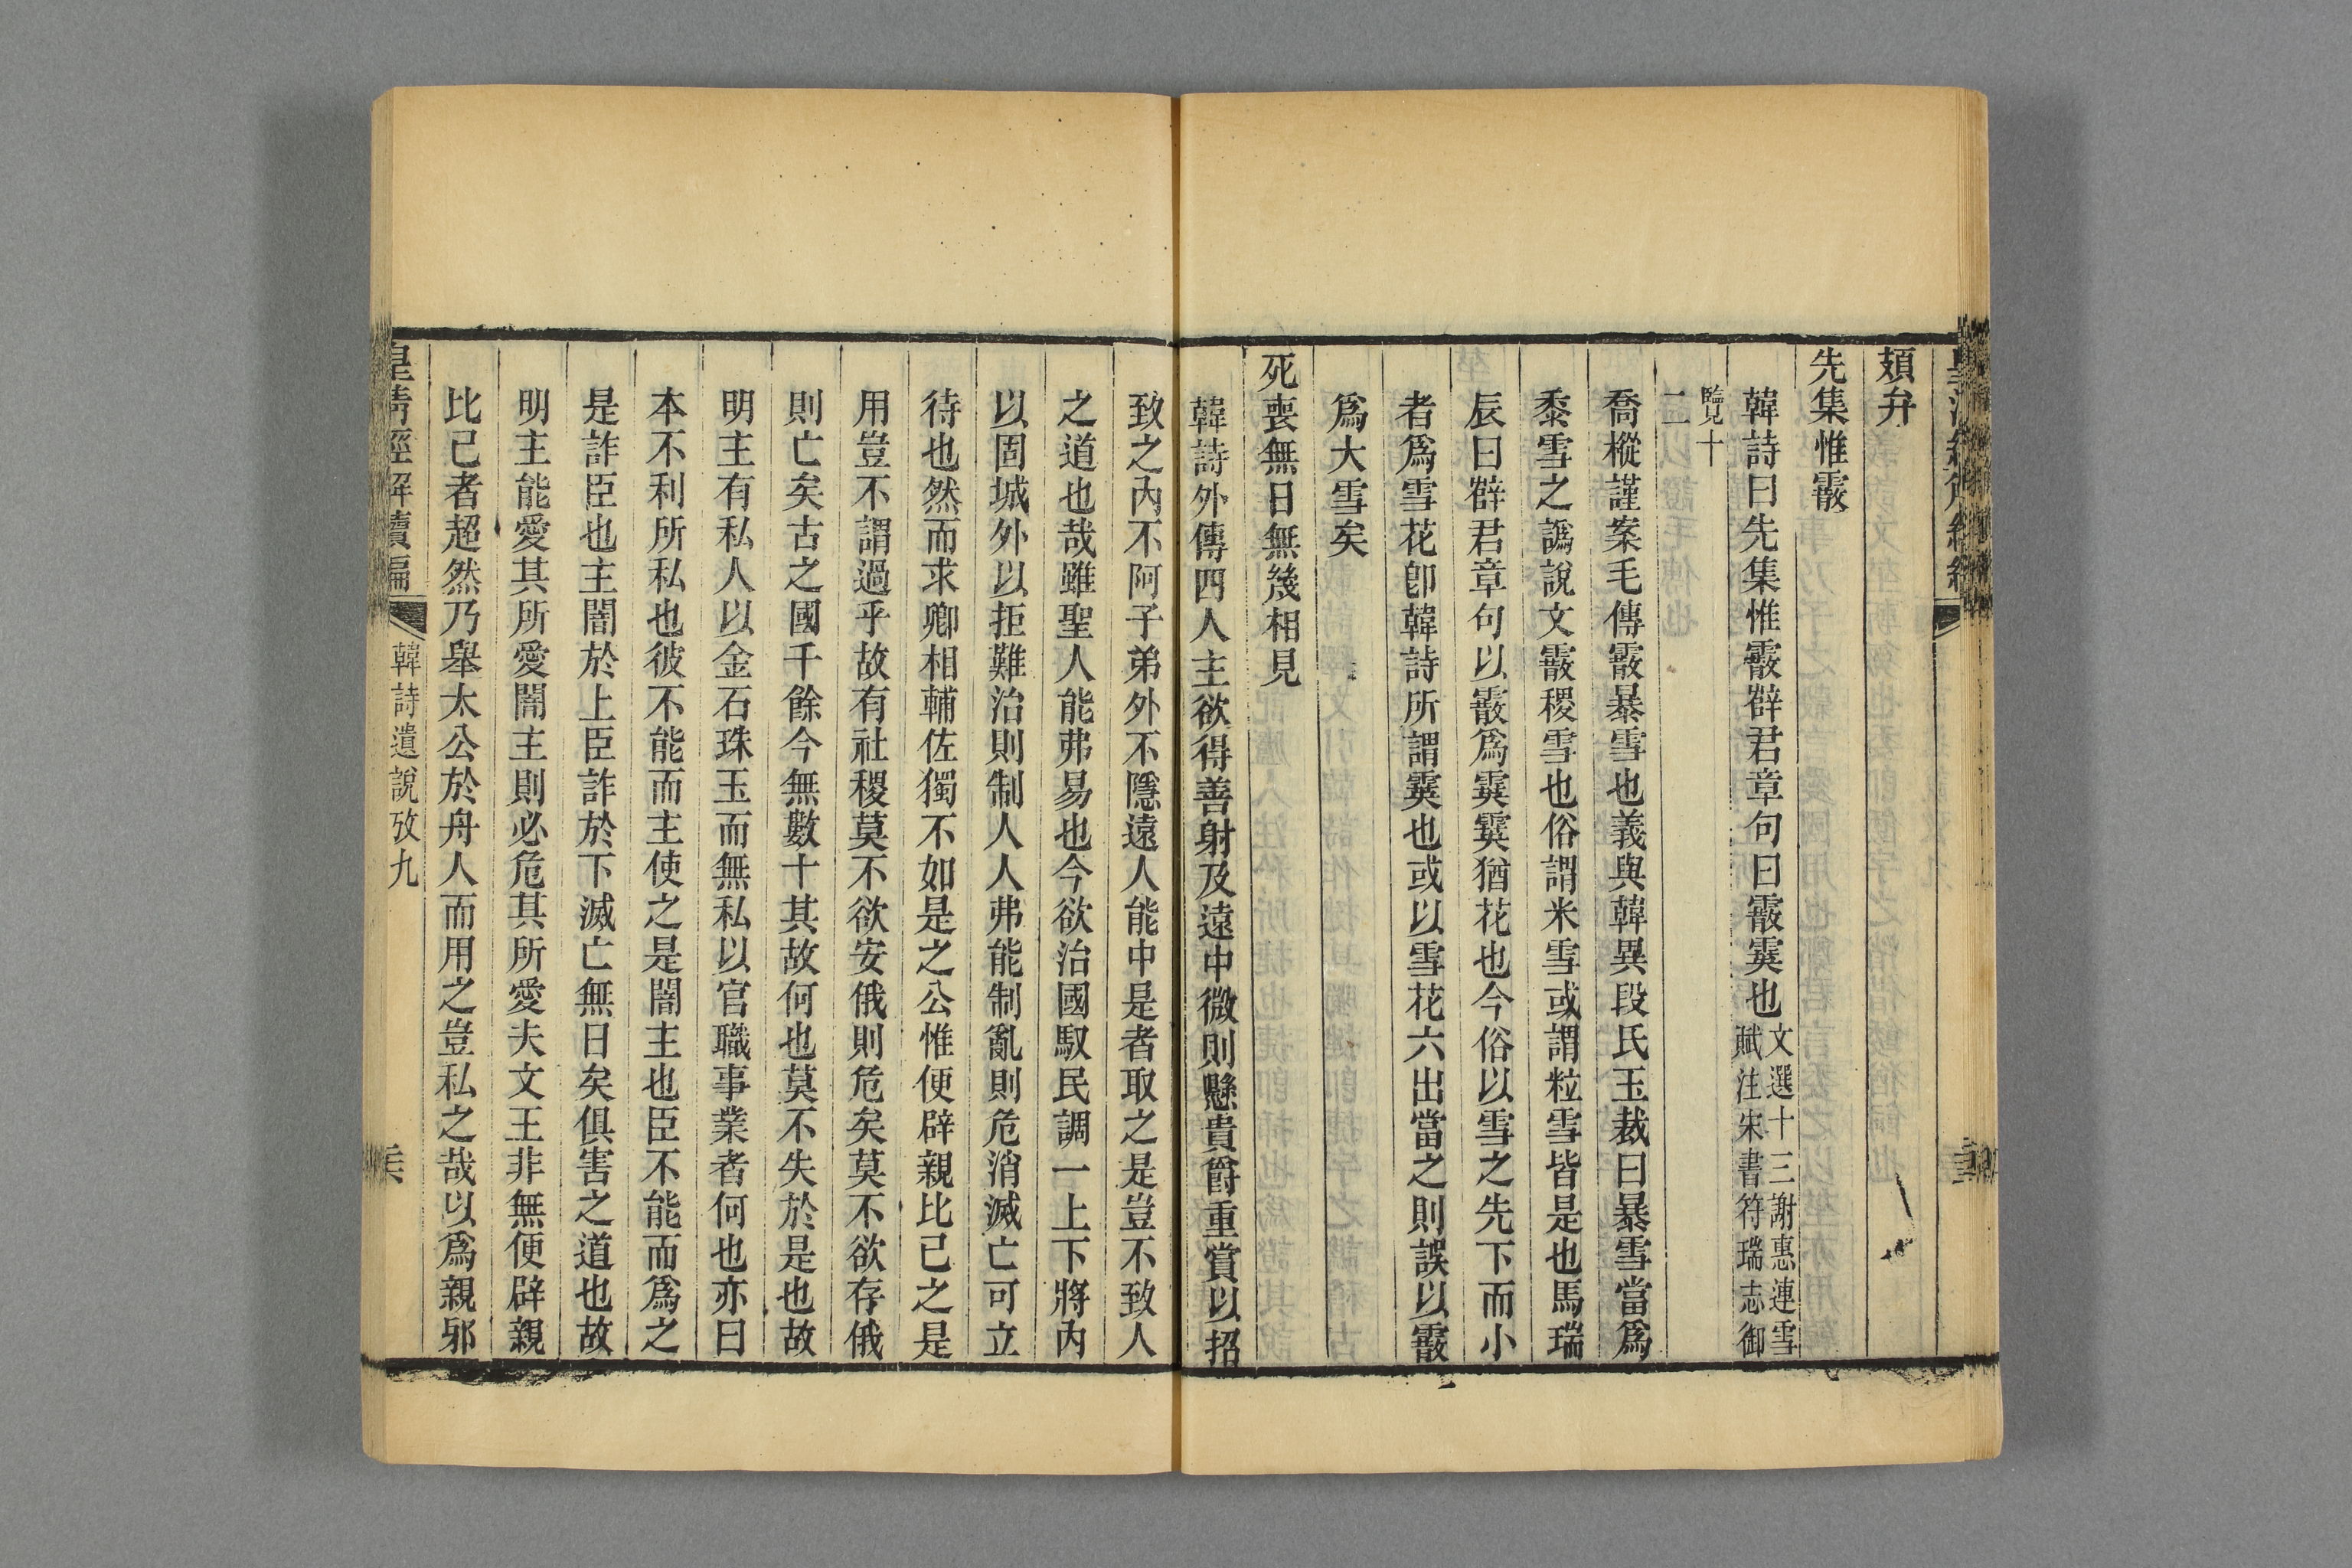 頍弁
先集惟霰
韓詩曰先集惟霰薛君章句曰霰霙也文選十三謝惠連雪賦注宋書符瑞志御
覽十二
喬樅謹案毛傳霰暴雪也義與韓異段氏玉裁曰暴雪當爲
黍雪之譌說文霰稷雪也俗謂米雪或謂粒雪皆是也馬瑞
辰曰薛君章句以霰爲霙霙猶花也今俗以雪之先下而小
者爲雪花卽韓詩所謂霙也或以雪花六出當之則誤以霰
爲大雪矣
死喪無日無幾相見
韓詩外傳四人主欲得善射及遠中微則懸貴爵重賞以招
致之內不阿子弟外不隱遠人能中是者取之是豈不致人
之道也哉雖聖人能弗易也今欲治國馭民調一上下將內
以固城外以拒難治則制人人弗能制亂則危消滅亡可立
待也然而求卿相輔佐獨不如是之公惟便辟親比己之是
用豈不謂過乎故有社稷莫不欲安俄則危矣莫不欲存俄
則亡矣古之國千餘今無數十其故何也莫不失於是也故
明主有私人以金石珠玉而無私以官職事業者何也亦曰
本不利所私也彼不能而主使之是闇主也臣不能而爲之
是詐臣也主闇於上臣詐於下滅亡無日矣俱害之道也故
明主能愛其所愛闇主則必危其所愛夫文王非無便辟親
比己者超然乃舉太公於舟人而用之豈私之哉以爲親邪
皇清經解續編
韓詩遺說攷九